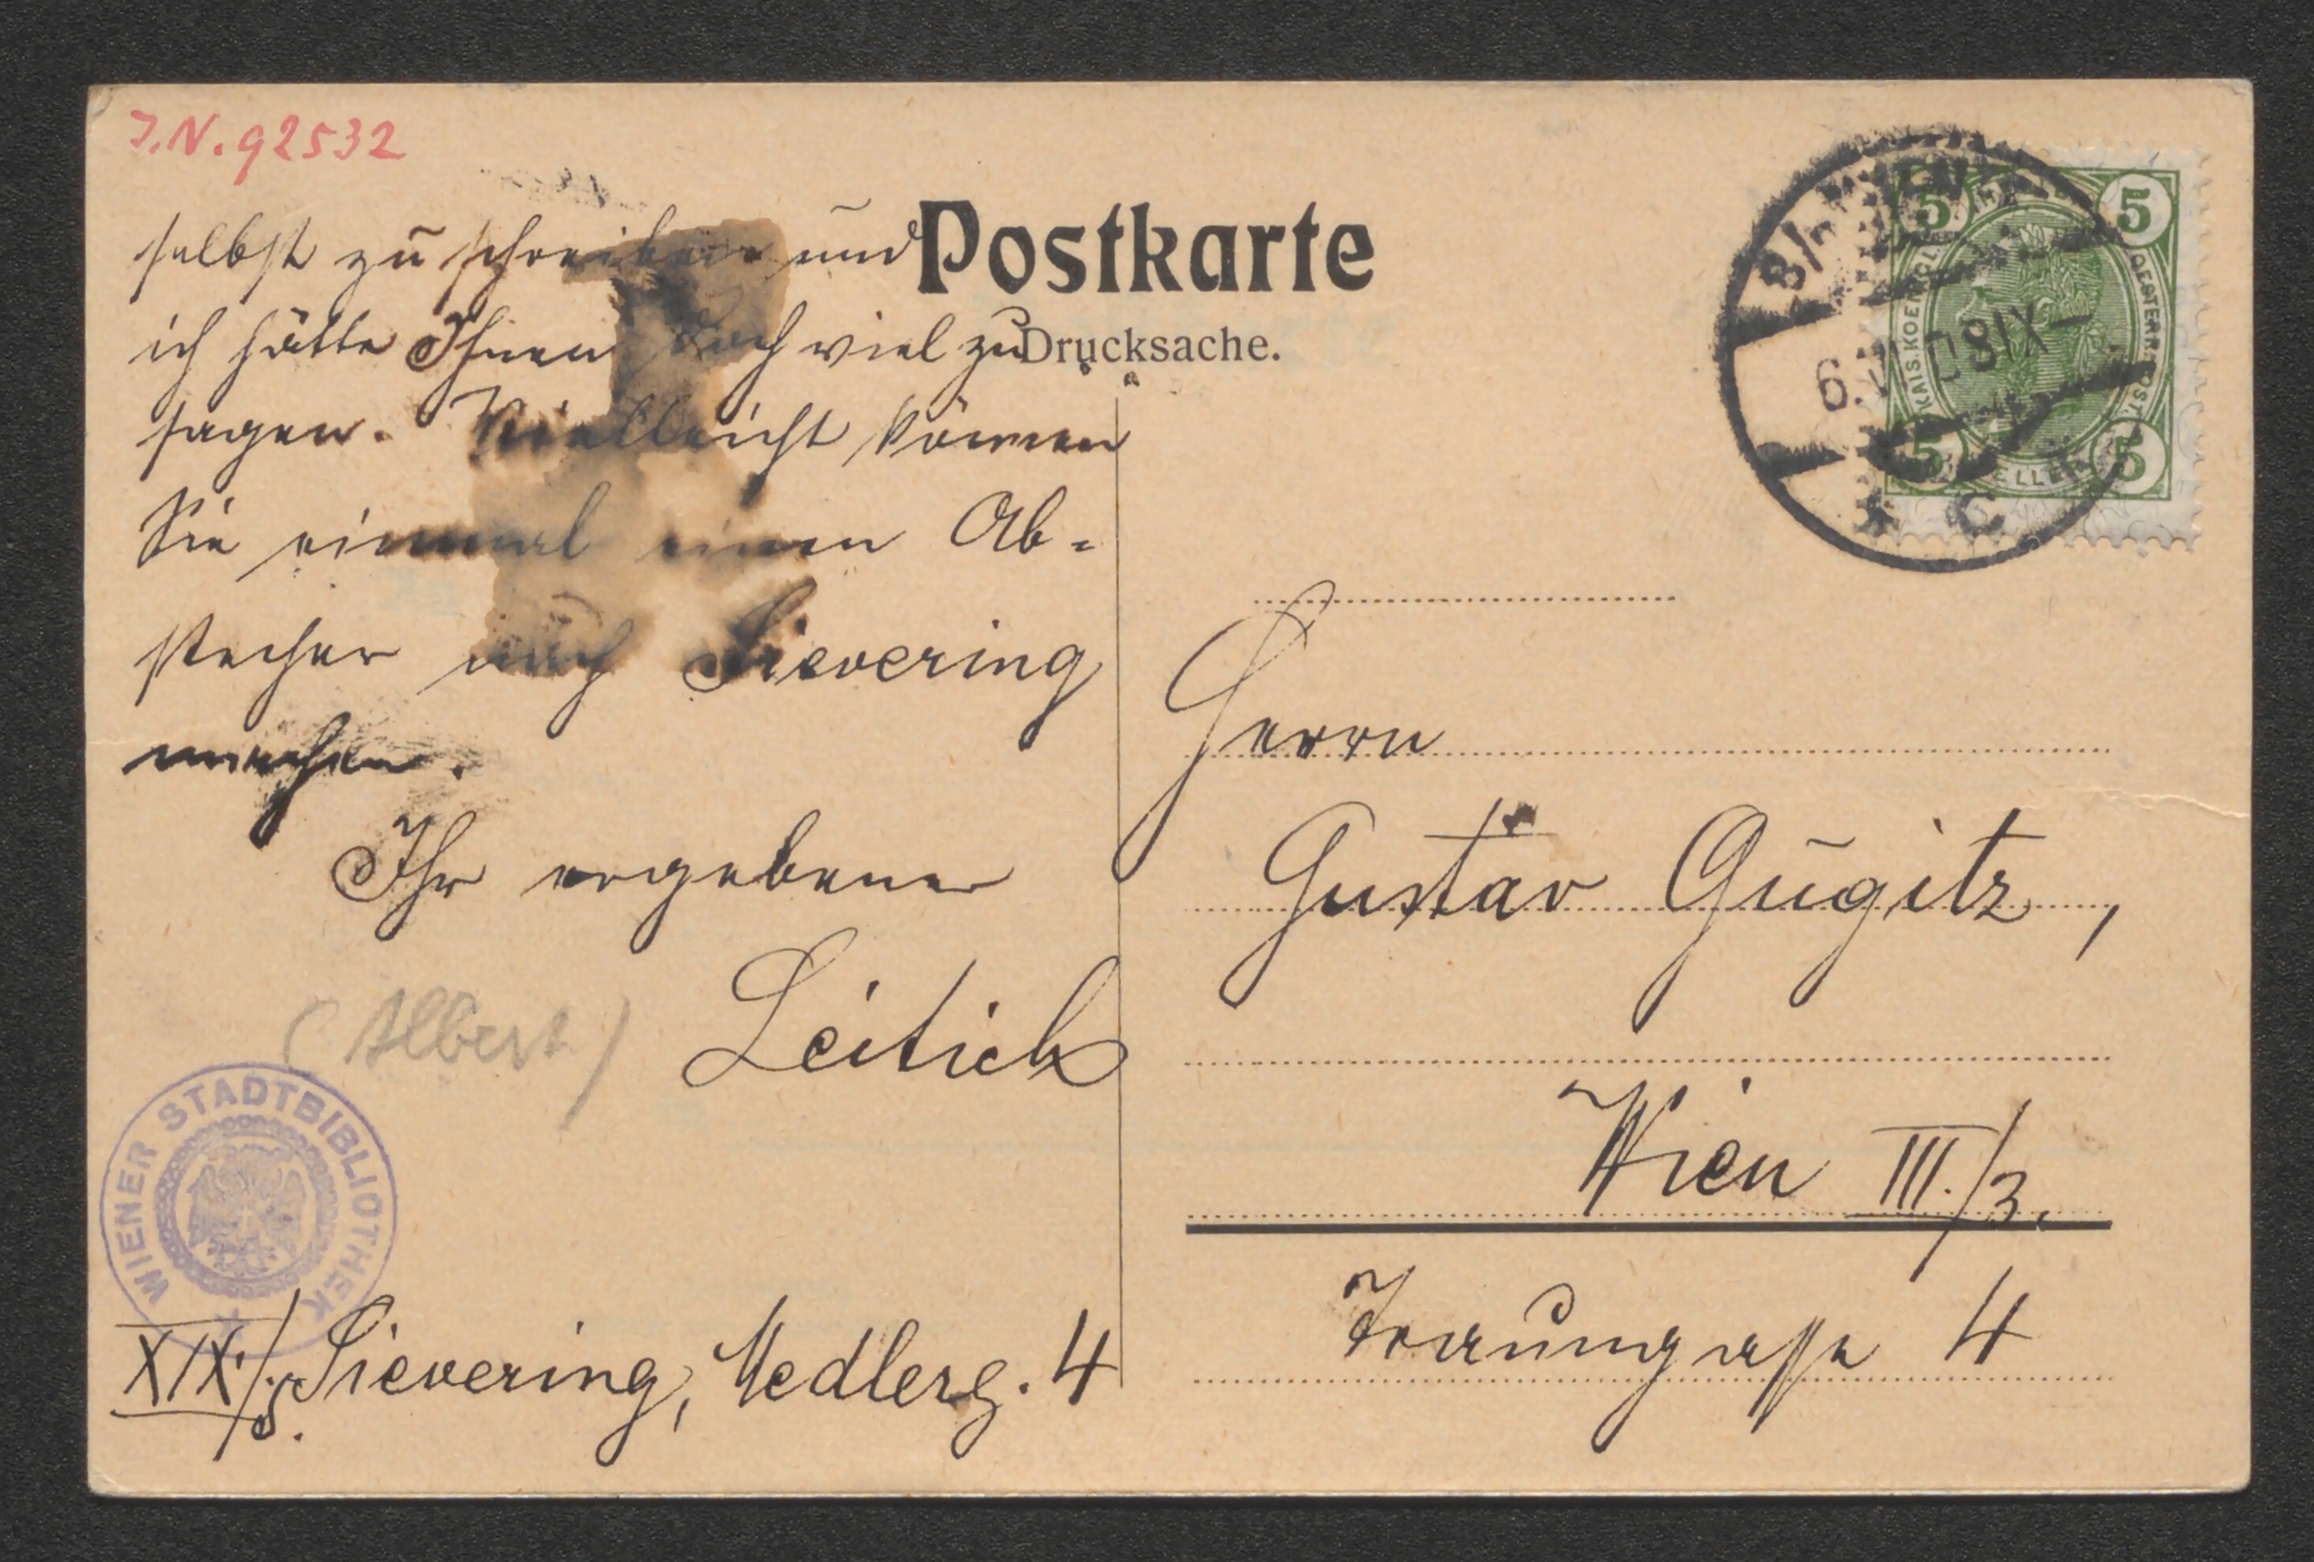 J.N. 92532
selbst zu schreiben und
ich hätte Ihnen doch viel zu
sagen. Vielleicht können
Sie einmal einen Ab-
stecher nach Sievering
machen.
Ihr ergebener
(Albert) Leitich
WIENER STADTBIBLIOTHEK
XIX./5. Sievering, Nedlerg. 4
Postkarte
Drucksache.
5 5
KAIS. KOENIGL. OESTERR. POST.
5 HELLER 5
WIEN
IX-
C
Herrn
Gustav Gugitz,
Wien III./3.
Traungasse 4